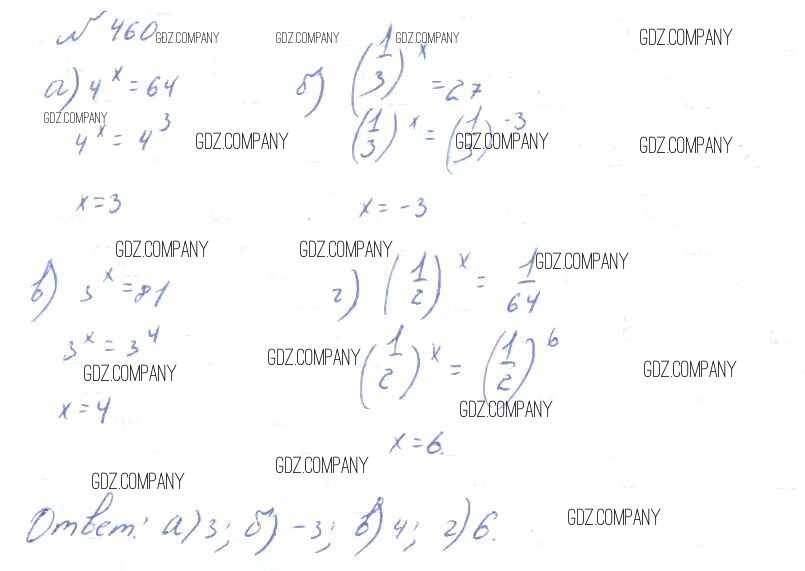 № 460 GDZ.COMPANY GDZ.COMPANY GDZ.COMPANY GDZ.COMPANY
а) 4^x = 64 б) (1/3)^x = 27
GDZ.COMPANY
4^x = 4^3 GDZ.COMPANY (1/3)^x = (1/3)^-3 GDZ.COMPANY GDZ.COMPANY
x = 3 x = -3
GDZ.COMPANY GDZ.COMPANY GDZ.COMPANY
в) 3^x = 81 г) (1/2)^x = 1/64
3^x = 3^4 GDZ.COMPANY (1/2)^x = (1/2)^6
GDZ.COMPANY GDZ.COMPANY
x = 4 GDZ.COMPANY
x = 6.
GDZ.COMPANY GDZ.COMPANY
Ответ: а) 3; б) -3; в) 4; г) 6. GDZ.COMPANY